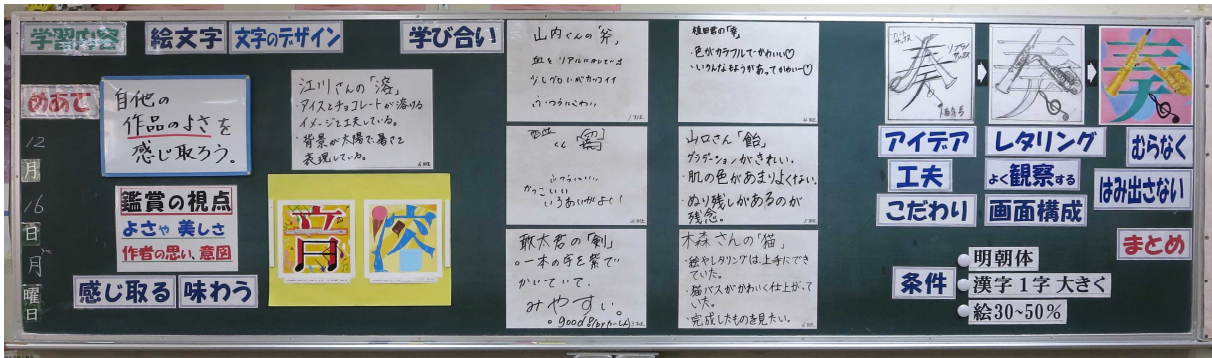 学習内容
絵文字
文字のデザイン
学び合い
めあて
自他の
作品のよさを
感じ取ろう。
12
月
16
日
月
曜
日
鑑賞の視点
よさや 美しさ
作者の思い、意図
感じ取る
味わう
江川さんの「溶」
・アイスとチョコレートが溶ける
イメージを工夫している。
・背景が太陽で、暑さを
表現している。
音
溶
山内くんの「斧」
血をリアルにかいている
少しグロいがカッコイイ
ふつうにこわい
植田君の「奏」
・色がカラフルでかわいい♡
・いろんなもようがあってかわいー♡
かっこいい
いろあいがよく!
山口さん「飴」
グラデーションがきれい.
・肌の色があまりよくない.
・ぬり残しがあるのが
残念.
敢太君の「剣」
。一本の字を紫で
かいていて、
みやすい。
木森さんの「猫」
・絵やレタリングは上手にで
きていた。
・猫バスがかわいく仕上がって
いた。
・完成したものを見たい。
奏
奏
奏
アイデア
工夫
こだわり
レタリング
よく観察する
画面構成
むらなく
はみ出さない
まとめ
条件
明朝体
漢字1字 大きく
絵30~50%